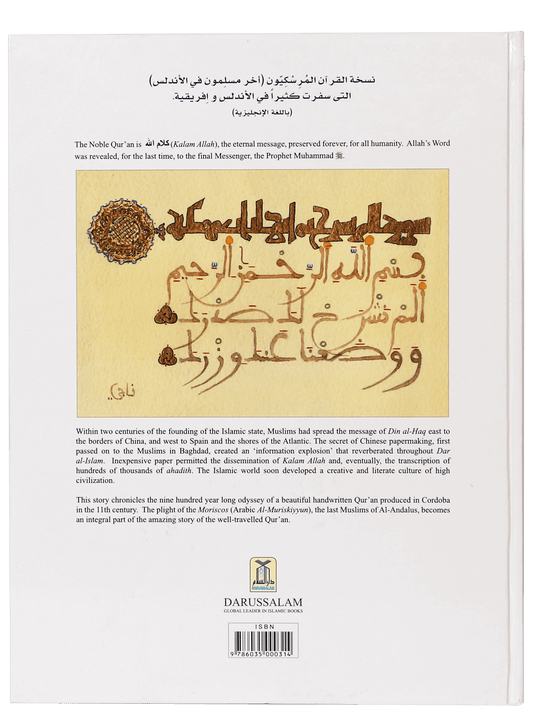 نسخة القرآن المُرِسْكِيّون (آخر مسلمون في الأندلس)
التى سفرت كثيراً في الأندلس و إفريقية.
(باللغة الإنجليزية)
The Noble Qur'an is كلام الله (Kalam Allah), the eternal message, preserved forever, for all humanity. Allah's Word
was revealed, for the last time, to the final Messenger, the Prophet Muhammad ﷺ.
بسم الله الرحمن الرحيم
ألم نشرح لك صدرك
ووضعنا عنك وزرك
Within two centuries of the founding of the Islamic state, Muslims had spread the message of Din al-Haq east to
the borders of China, and west to Spain and the shores of the Atlantic. The secret of Chinese papermaking, first
passed on to the Muslims in Baghdad, created an 'information explosion' that reverberated throughout Dar
al-Islam. Inexpensive paper permitted the dissemination of Kalam Allah and, eventually, the transcription of
hundreds of thousands of ahadith. The Islamic world soon developed a creative and literate culture of high
civilization.
This story chronicles the nine hundred year long odyssey of a beautiful handwritten Qur'an produced in Cordoba
in the 11th century. The plight of the Moriscos (Arabic Al-Muriskiyyun), the last Muslims of Al-Andalus, becomes
an integral part of the amazing story of the well-travelled Qur'an.
دار السلام
DARUSSALAM
DARUSSALAM
GLOBAL LEADER IN ISLAMIC BOOKS
ISBN
9 786035 000314